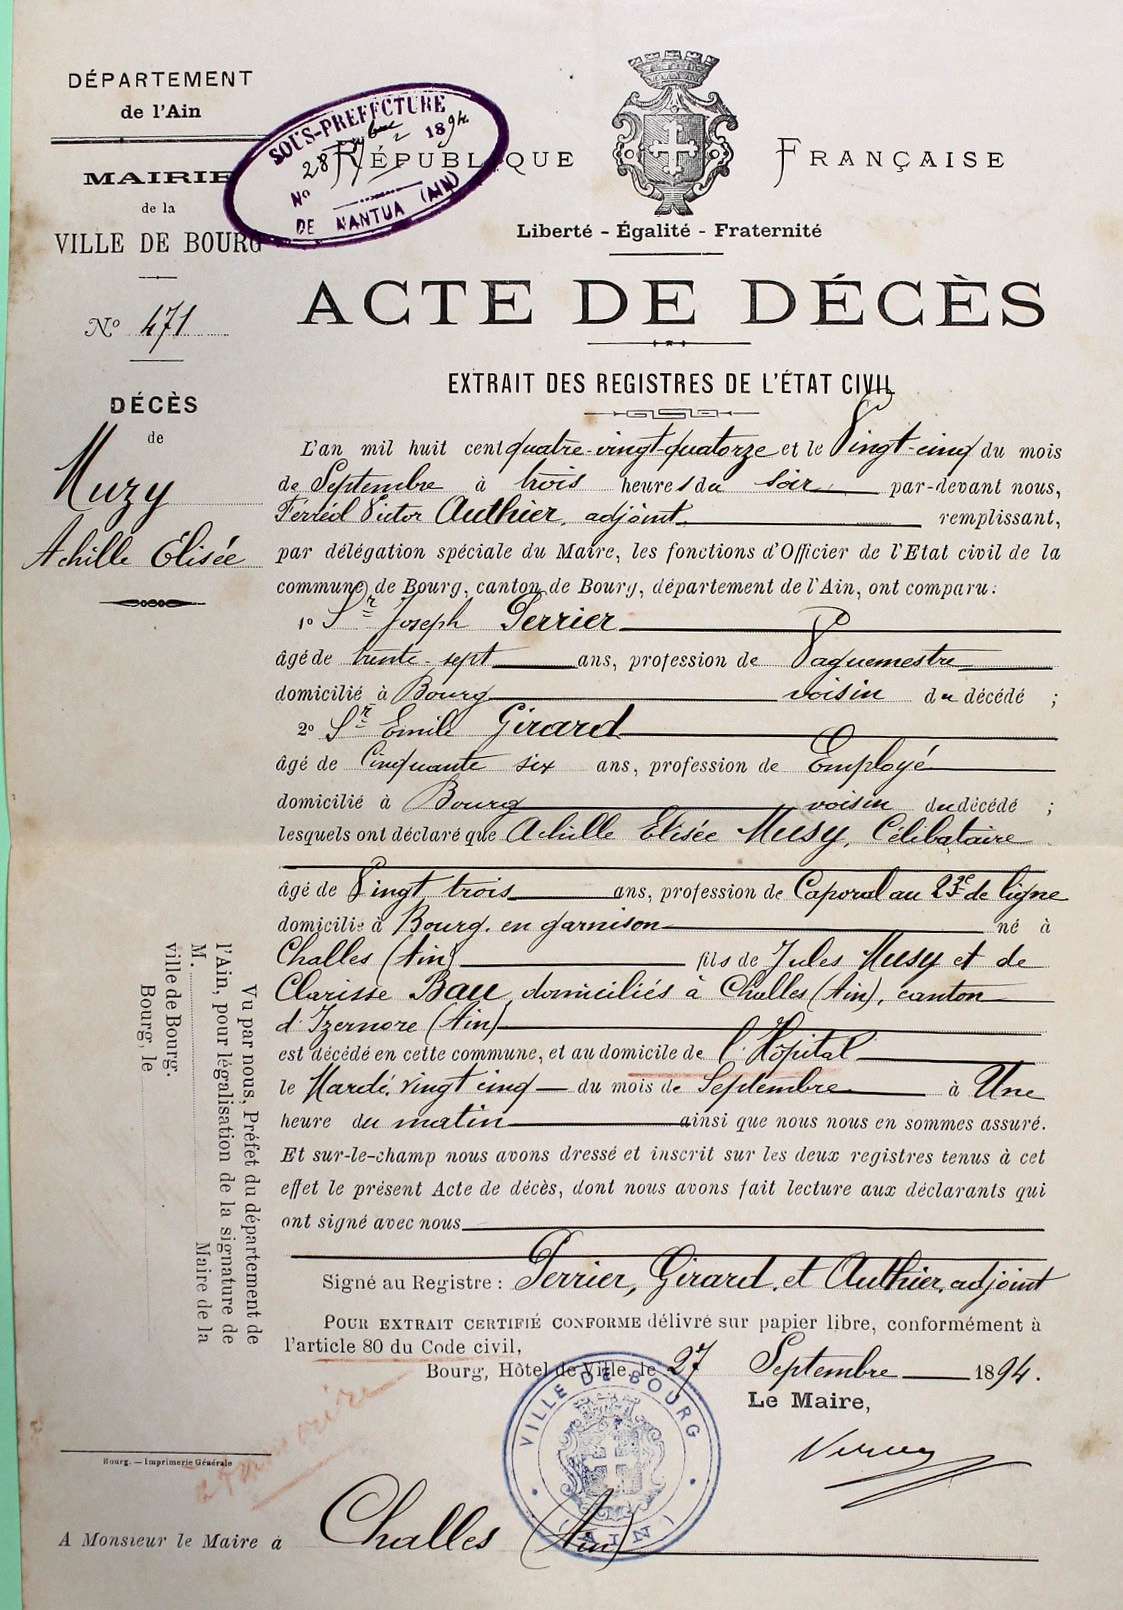 DÉPARTEMENT
de l'Ain
MAIRIE
de la
VILLE DE BOURG
SOUS-PREFECTURE
28 7bre 1894
No
DE NANTUA (AIN)
RÉPUBLIQUE FRANÇAISE
Liberté - Égalité - Fraternité
No 471
DÉCÈS
de
Muzy
Achille Élisée
ACTE DE DÉCÈS
EXTRAIT DES REGISTRES DE L'ÉTAT CIVIL
L'an mil huit cent quatre-vingt-quatorze et le Vingt-cinq du mois
de Septembre à trois heures du soir par-devant nous,
Ferréol Victor Authier, adjoint remplissant,
par délégation spéciale du Maire, les fonctions d'Officier de l'Etat civil de la
commune de Bourg, canton de Bourg, département de l'Ain, ont comparu:
1o Sr Joseph Perrier
âgé de trente-sept ans, profession de Vaguemestre
domicilié à Bourg voisin du décédé ;
2o Sr Emile Girard
âgé de Cinquante six ans, profession de Employé
domicilié à Bourg voisin du décédé ;
lesquels ont déclaré que Achille Elisée Musy, Célibataire
âgé de Vingt trois ans, profession de Caporal au 23e de ligne
domicilié à Bourg, en garnison né à
Challes (Ain) fils de Jules Musy et de
Clarisse Bau, domiciliés à Challes (Ain), canton
d'Izernore (Ain)
est décédé en cette commune, et au domicile de l'Hôpital
le Mardi, vingt cinq du mois de Septembre à Une
heure du matin ainsi que nous nous en sommes assuré.
Et sur-le-champ nous avons dressé et inscrit sur les deux registres tenus à cet
effet le présent Acte de décès, dont nous avons fait lecture aux déclarants qui
ont signé avec nous
Signé au Registre: Perrier, Girard, et Authier, adjoint
POUR EXTRAIT CERTIFIÉ CONFORME délivré sur papier libre, conformément à
l'article 80 du Code civil,
Bourg, Hôtel de Ville, le 27 Septembre 1894.
Le Maire,
VILLE DE BOURG
(AIN)
Vu par nous, Préfet du département de
l'Ain, pour légalisation de la signature de
M. Maire de la
ville de Bourg.
Bourg, le
Bourg. — Imprimerie Générale
A Monsieur le Maire à Challes (Ain)